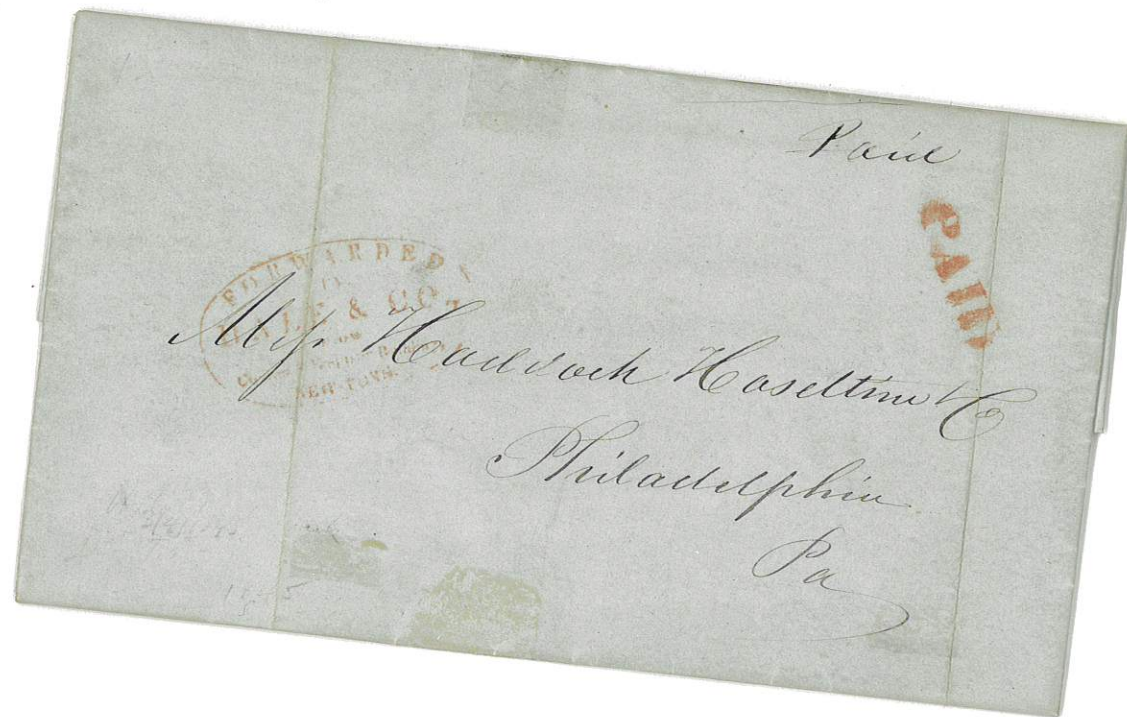 Paid
PAID
FORWARDED
HALE & CO.
NEW-YORK.
Mess Haddock Haseltine & Co
Philadelphia
Pa